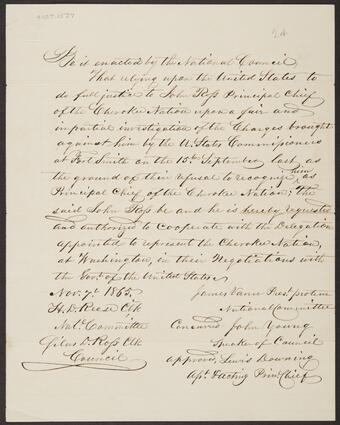 24
Be it enacted by the National Council
That relying upon the United States to
do full justice to John Ross Principal Chief
of the Cherokee Nation upon a fair and
impartial investigation of the Charges brought
against him by the U. States Commissioners
at Fort Smith on the 15th September last as
the ground of their refusal to recognize him as
Principal Chief of the Cherokee Nation; the
said John Ross be and he is hereby requested
and authorized to Cooperate with the Delegation
appointed to represent the Cherokee Nation,
at Washington, in their Negotiations with
the Govt. of the United States.
Nov. 7th 1865.
James Vann Prest. protem
National Committee
H. D. Reese Clk
Natl. Committee
Concurred John Young
Speake of Council
Silas D. Ross Clk
Council
Approved, Lewis Downing
Asst. & acting Prin. Chief